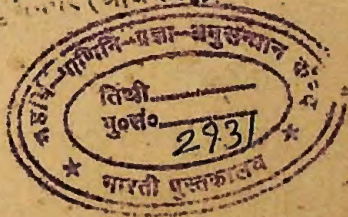 पाणिनि-प्रज्ञा-अनुसन्धान केन्द्र
तिथी..............
पु०सं०..............
2931
* भारती पुस्तकालय *